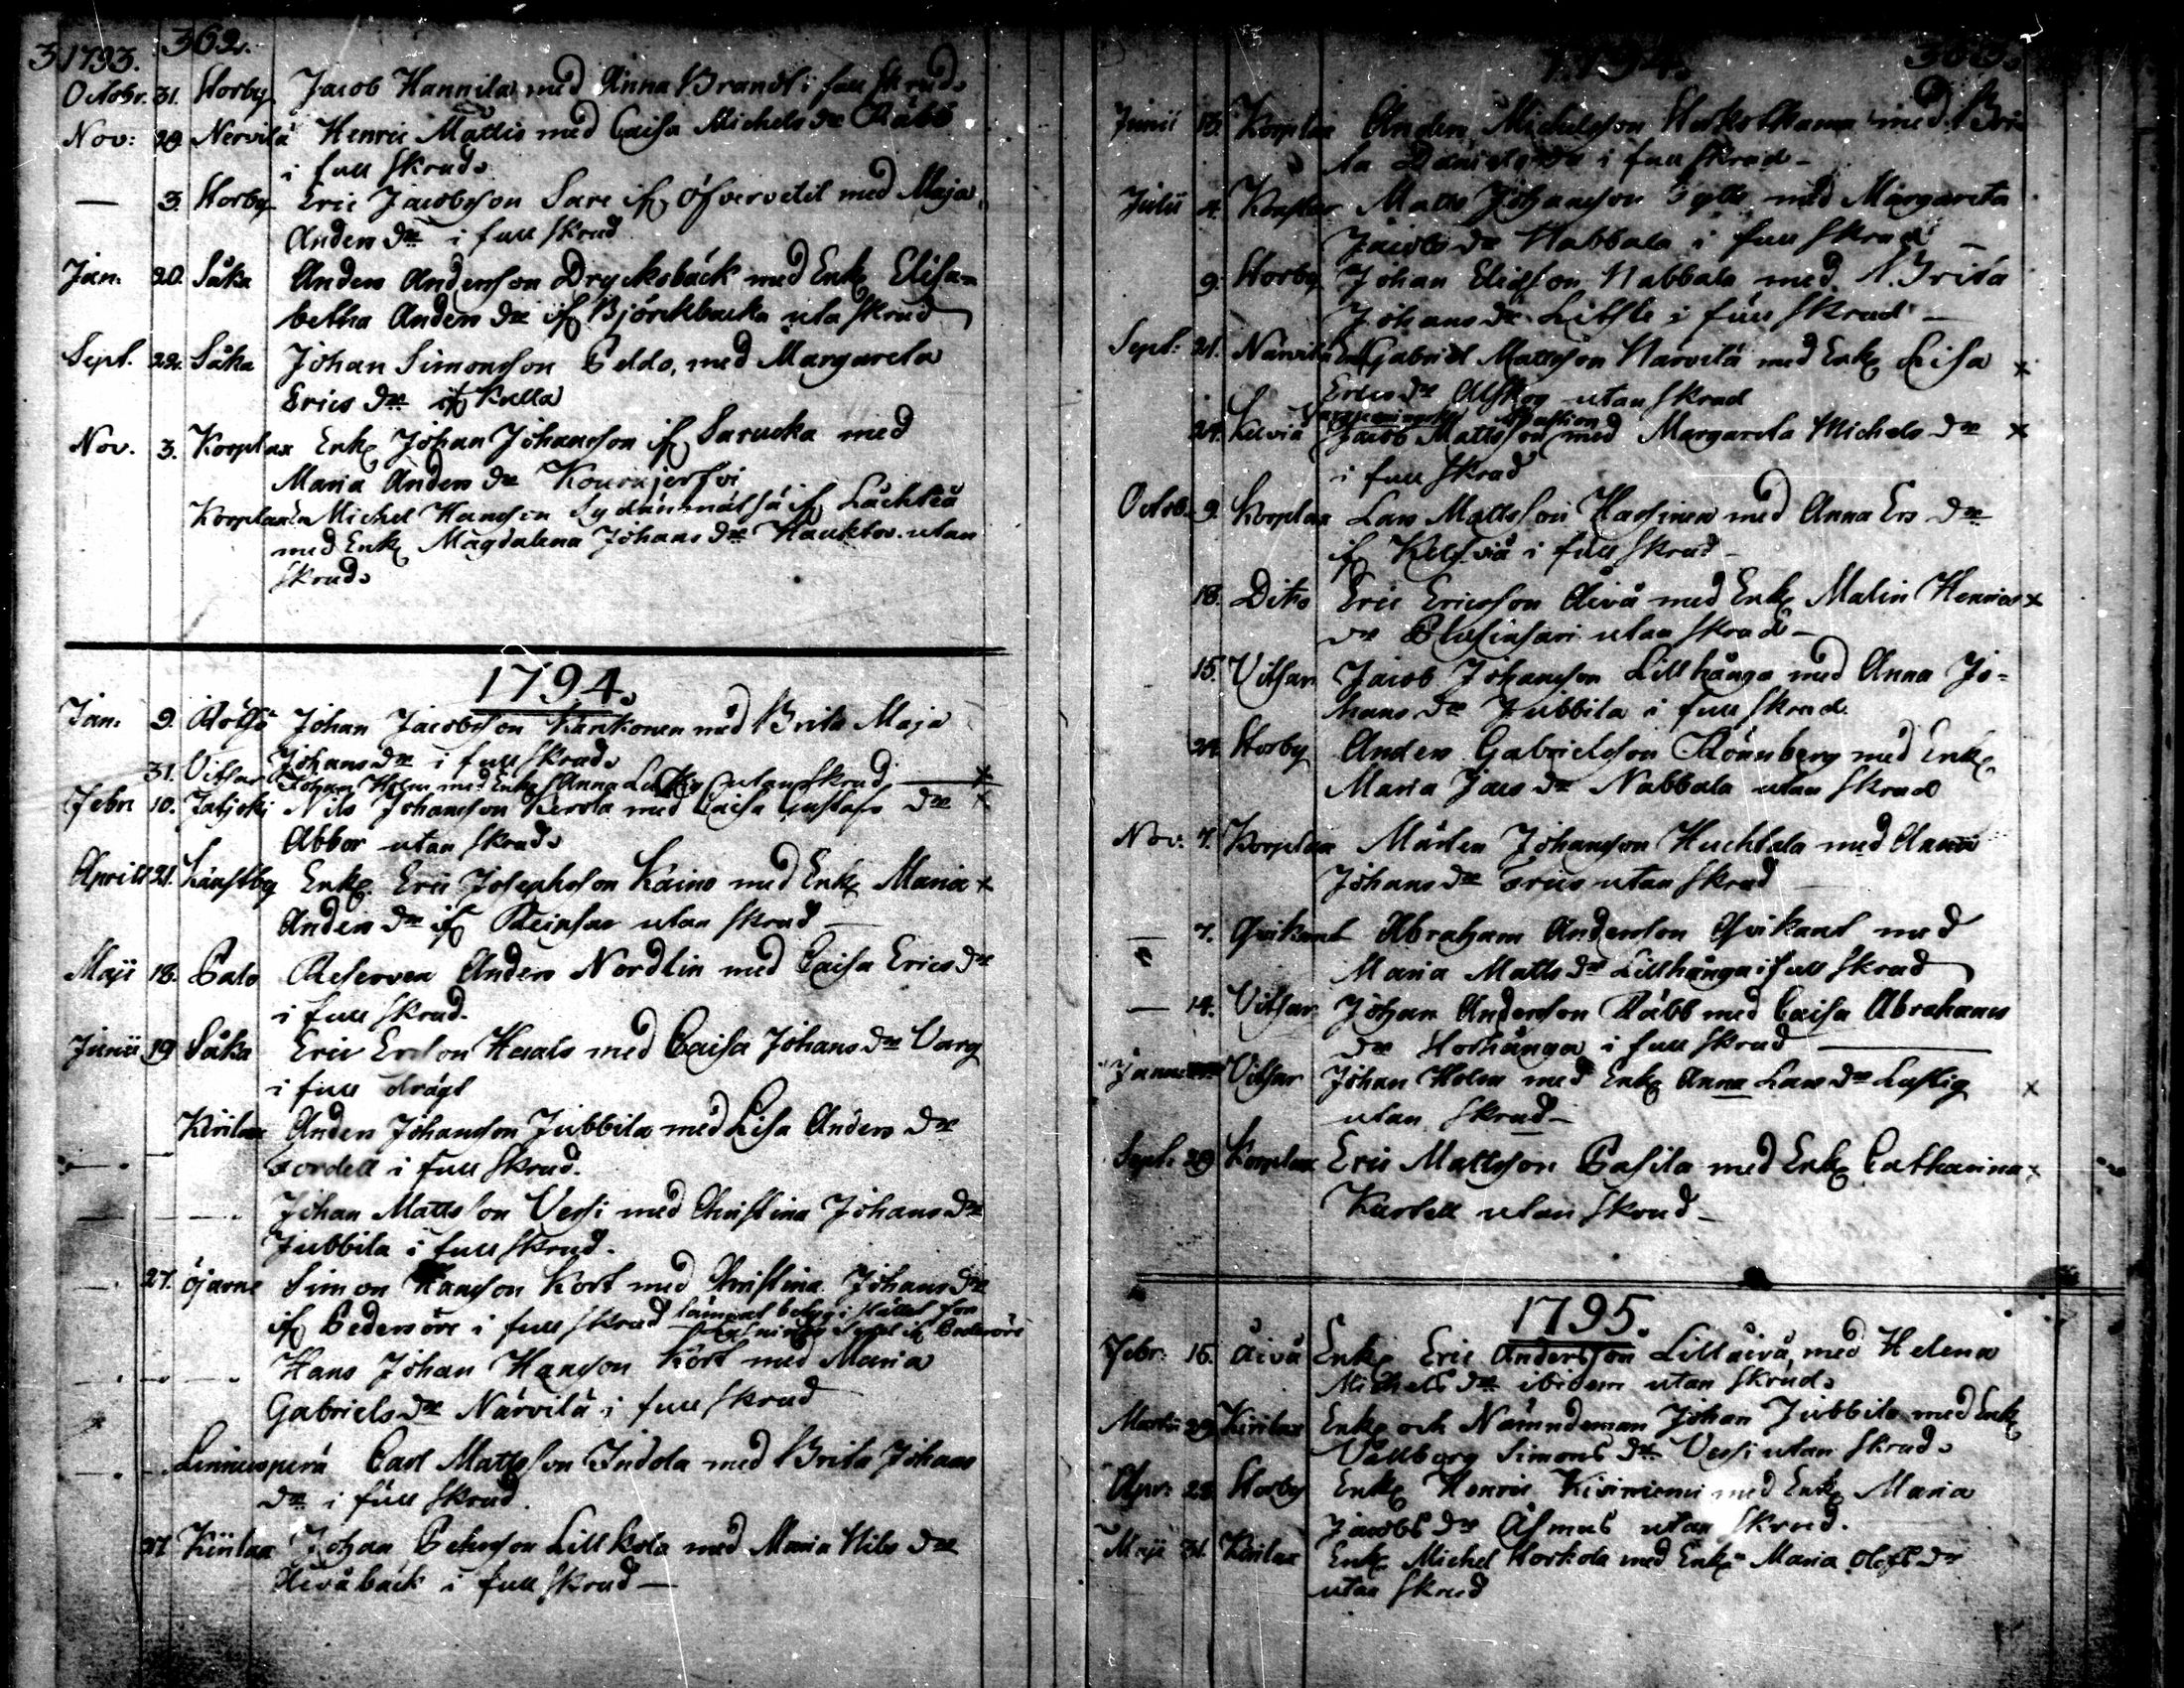 1793. 362.
Octobr. 31. Storby Jacob Hannila med Anna Brandt i full skrud.
Nov: 29. Nervilä Henric Mattis med Caisa Michels dr Räbb
i full skrud.
— 3. Storby Eric Jacobsson Sare if. öfvervetil med Maja
Anders dr i full skrud
Jan. 20. Såka Anders Andersson Drycksbäck med Enk. Elisa-
betha Anders dr if. Björckbacka uta skrud
Sept. 22. Såka Johan Simonsson Peldo, med Margareta
Erics dr if. Kulla
Nov. 3. Korplax Enk. Johan Johansson if. Sarucka med
Maria Anders dr
Korplax Michel Hansson if. Låchteå
med Enk. Magdalena Johans dr utan
skrud.
1794.
Jan. 9. Johan Jacobsson Karikonen med Brita Maja
Johans dr i full skrud.
31. Vitsar Johan Holm med Enk. Anna utan skrud — x
Febr. 10. Nils Johansson Kerola med Caisa Gustafs dr x
Abbor utan skrud.
Aprill 21. Känstby Enk. Eric Josephsson Kaino med Enk. Maria x
Anders dr if. utan skrud —
Maji 18. Palo Reserven Anders Nordlin med Caisa Erics dr
i full skrud.
Junii 19 Såka Eric Ersson Haals med Caisa Johans dr Varg
i full drägt
Kirilax Anders Johansson Jubbila med Lisa Anders dr
i full skrud.
Johan Matts son Versi med Christina Johans dr
Jubbila i full skrud.
27. öjarne Simon Hansson Kort med Christina Johans dr
if. Pedersöre i full skrud lämnat
Hans Johan Hansson Kort med Maria
Gabriels dr Närvilä i full skrud
Linnusperä Carl Matts son Indola med Brita Johans
dr i full skrud.
27 Kirilax Johan Pehrsson Lillkola med Maria Nils dr
Aivåbäck i full skrud —
1794. 363.
Junii 13. Korplax Anders Michelsson med Bri-
ta Daniels dr i full skrud —
Julii 4. Korplax Matts Johansson med Margareta
Jacobs dr Nabbala i full skrud —
9. Storby Johan Eliasson Nabbala med A. Brita
Johans dr i full skrud —
Sept: 21. Närvilä Enk. Gabriel Mattsson Närvilä med Enk. Lisa x
Erics dr Alskog utan skrud
24. Kelviå Jacob Mattsson med Margareta Michels dr x
i full skrud
Octob. 9. Korplax Lars Mattsson Hassinen med Anna Ers dr
if. Kelfviå i full skrud —
13. Dito Eric Ericsson Aivå med Enk. Malin Henrics x
dr utan skrud —
15. Vitsar Jacob Johansson Lillhånga med Anna Jo-
hans dr Jubbila i full skrud.
24 Storby Anders Gabrielsson Rönnberg med Enk.
Maria Jacs dr Nabbala utan skrud
Nov. 7. Korplax Mårten Johansson Huchtala med Anna
Johans dr utan skrud
— 7. Qvikant Abraham Andersson Qvikant med
Maria Matts dr Lillhånga i full skrud
— 14. Vitsar Johan Andersson Räbb med Caisa Abrahams
dr Storhånga i full skrud —
Vitsar Johan Holm med Enk. Anna Lars dr Lustig x
utan skrud —
Sept. 29 Korplax Eric Mattsson Pasila med Enk. Catharina x
Kartell utan skrud —
1795.
Febr: 15. Aivå Enk. Eric Andersson Lillaivå, med Helena
Michels dr ibidem utan skrud.
Martii 29 Kirilax Enk. och Nämndeman Johan Jubbila med Enk.
Vallborg Simons dr Versi utan skrud.
Apr: 25 Storby Enk. Henric Kiviniemi med Enk. Maria
Jacobs dr Asmus utan skrud.
Maji 31. Kirilax Enk. Michel Storkola med Enk. Maria Olofs dr
utan skrud